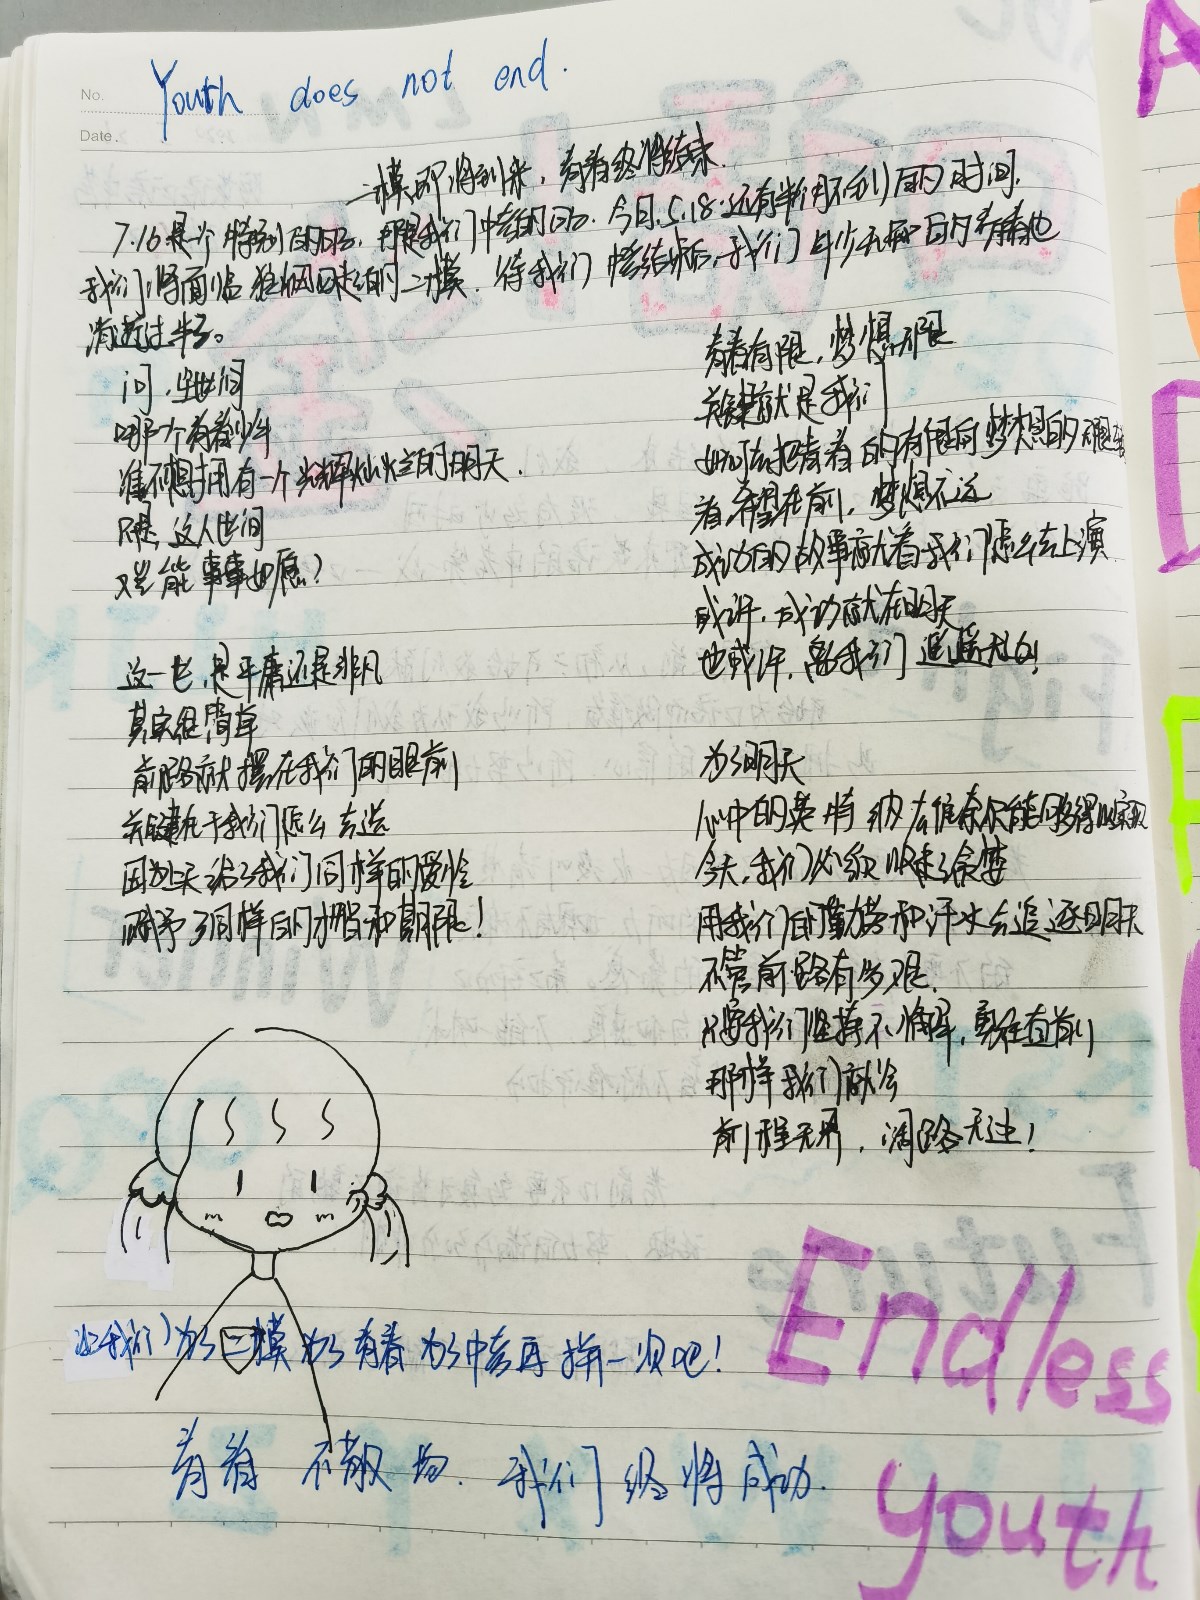 No.
Date.
Youth does not end.
二模即将到来，青春终将结束.
7.16是一个特别的日子，那是我们中考的日子. 今日.5.18.还有半个月不到的时间.
我们将面临 二模. 待我们 结束后,我们年少无知的青春也
消逝过半了。
问，世间
哪一个青春少年
谁不想拥有一个光辉灿烂的明天.
只是,这人世间
又岂能事事如愿?
这一世,是平庸还是非凡
其实很简单
前路就摆在我们的眼前
关键在于我们怎么去选
因为上天给了我们同样的
赋予了同样的 和期限!
青春有限，梦想无限
关键就是我们
如何去把青春的有限向梦想的无限
看,希望在前，梦想不远
成功的故事就看我们怎么去上演
或许，成功就在明天
也或许，离我们遥遥无期!
为了明天
心中的英特纳雄奈尔能够得以实现
今天,我们必须
用我们的勤劳和汗水去追逐明天
不管前路有多艰.
只要我们坚持不懈，勇往直前
那样我们就会
前程无界，
让我们为了二模为了青春为了中考再拼一次吧!
青春不散场. 我们终将成功.
Endless
youth